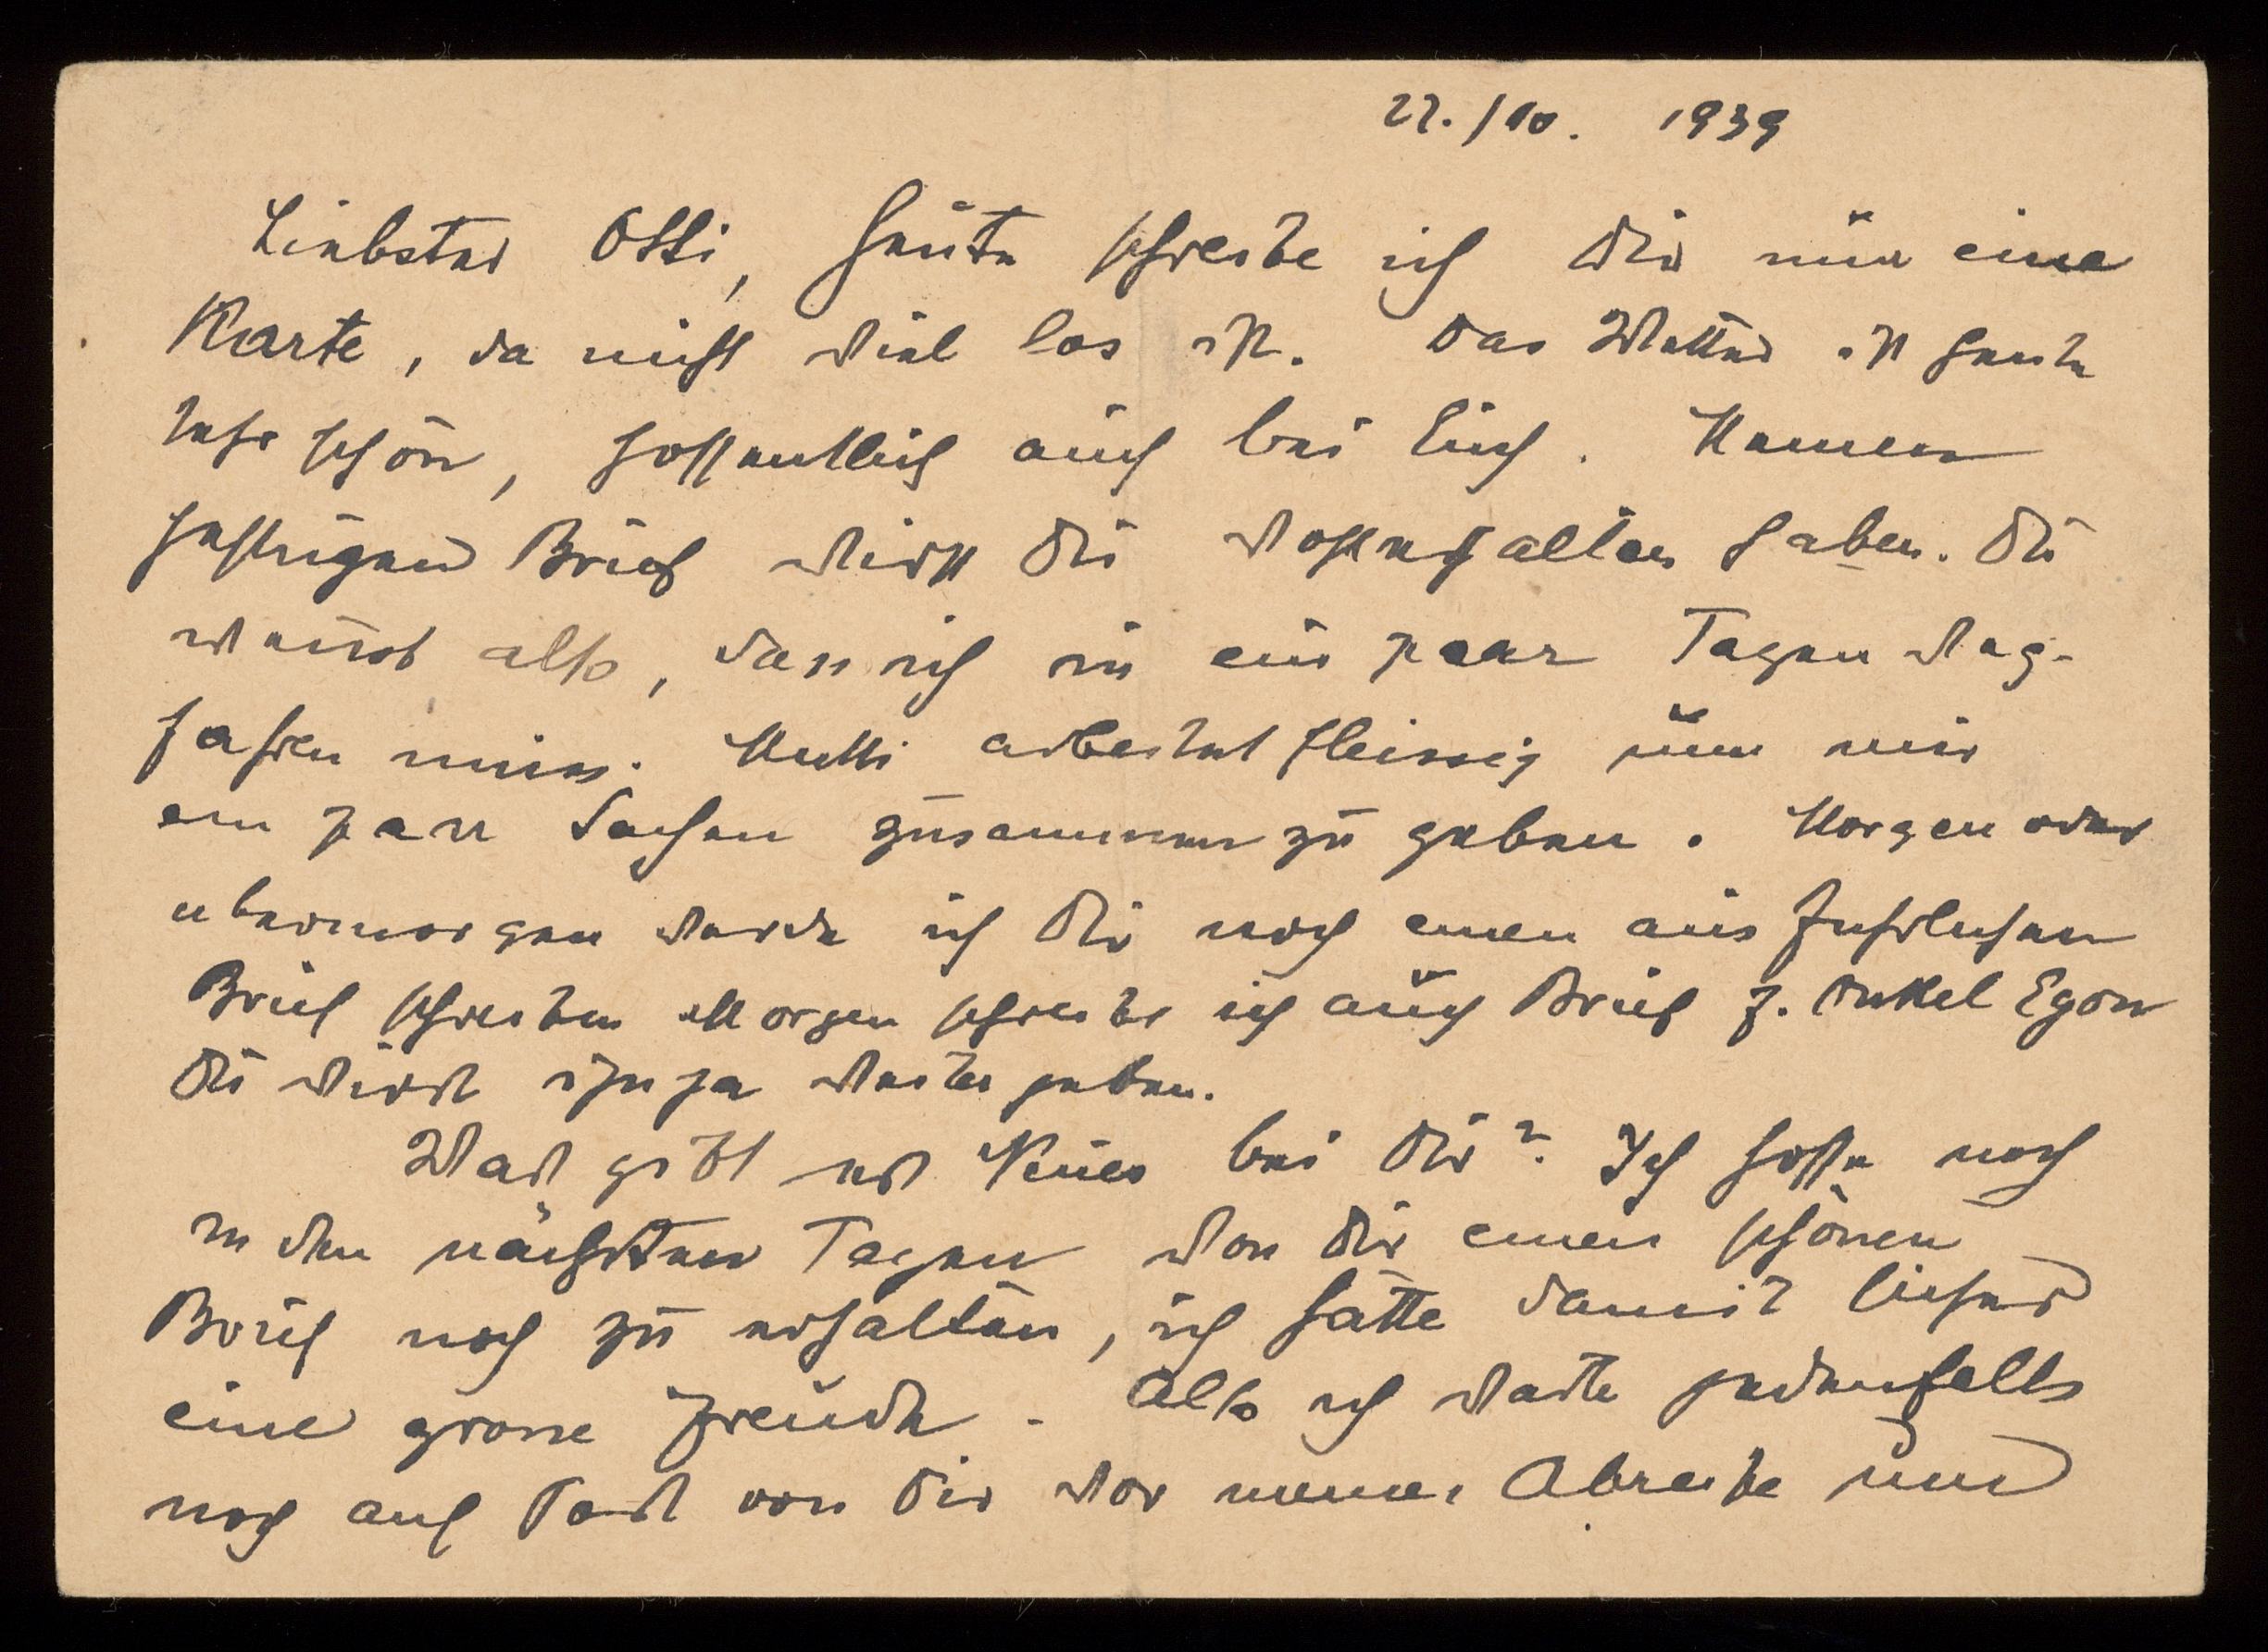 22./10. 1939
Liebster Otti, heute schreibe ich Dir nur eine
Karte, da nicht viel los ist. Das Wetter ist heute
sehr schön, hoffentlich auch bei Euch. Meinen
gestrigen Brief wirst Du wohl erhalten haben. Du
weisst also, dass ich in ein paar Tagen weg-
fahren muss. Mutti arbeitet fleissig um mir
ein paar Sachen zusammen zu geben. Morgen oder
ubermorgen werde ich Dir noch einen aus führlichen
Brief schreiben Morgen schreibe ich auch Brief z. Onkel Egon
Du wirst ihn ja weiter geben.
Was gibt es Neues bei Dir? Ich hoffe noch
in den nächsten Tagen von Dir einen schönen
Brief noch zu erhalten, ich hätte damit sicher
eine grosse Freude. Also ich warte jedenfalls
noch auf Post von Dir vor meiner Abreise und